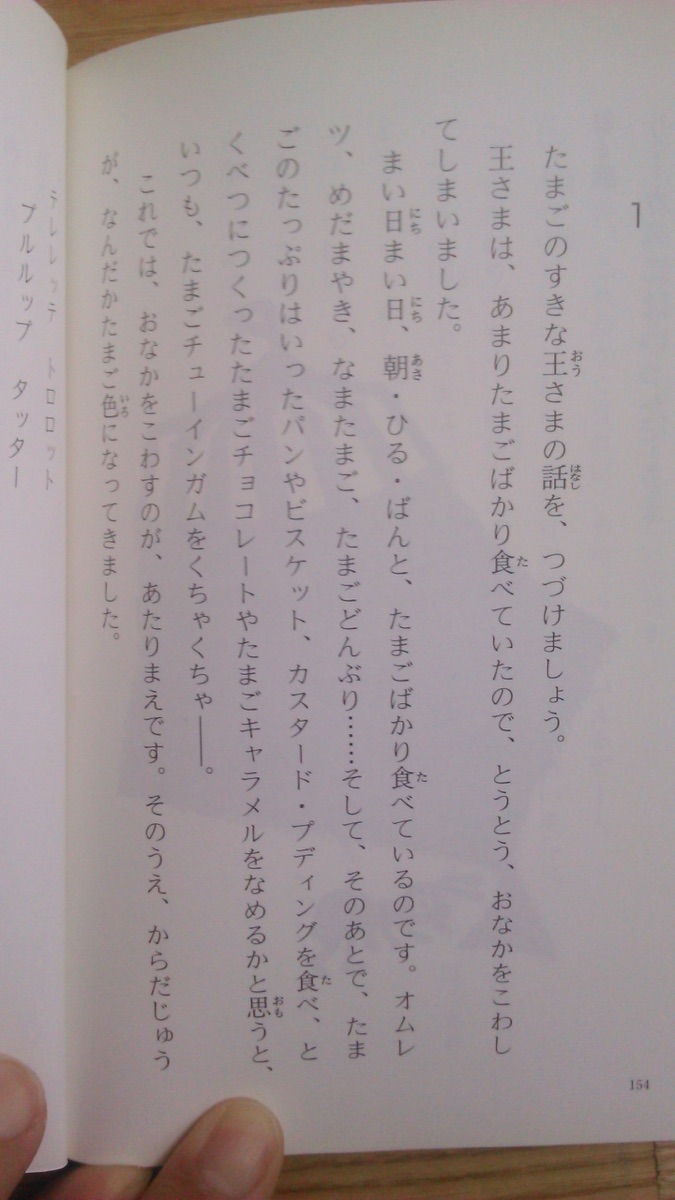 1
たまごのすきな王さまの話を、つづけましょう。
王さまは、あまりたまごばかり食べていたので、とうとう、おなかをこわし
てしまいました。
まい日まい日、朝・ひる・ばんと、たまごばかり食べているのです。オムレ
ツ、めだまやき、なまたまご、たまごどんぶり……そして、そのあとで、たま
ごのたっぷりはいったパンやビスケット、カスタード・プディングを食べ、と
くべつにつくったたまごチョコレートやたまごキャラメルをなめるかと思うと、
いつも、たまごチューインガムをくちゃくちゃ――。
これでは、おなかをこわすのが、あたりまえです。そのうえ、からだじゅう
が、なんだかたまご色になってきました。
154
テレレッテ トロロット
プルルップ タッター